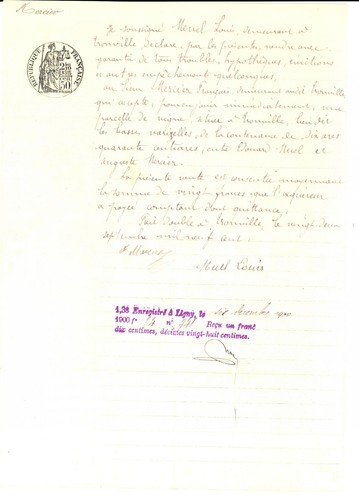 Mercier
RÉPUBLIQUE FRANÇAISE
50
Je soussigné Muel Louis, demeurant à
Tronville déclare, par les présentes, vendre avec
garantie de tous troubles, hypothèques, évictions
et autres empêchements quelconques,
au sieur Mercier François, demeurant audit Tronville
qui accepte, pour en jouir immédiatement, une
parcelle de vigne, située à Tronville, lieu dit
les basses de la contenance de dix ares
quarante centiares, entre Edouard Muel et
Auguste Mercier.
La présente vente est consentie moyennant
la somme de vingt francs que l'acquéreur
a payée comptant dont quittance.
Fait double à Tronville, le vingt deux
septembre mil neuf cent.
Mercier
Muel Louis
1,38 Enregistré à Ligny, le 1900
1900 f° n° Reçu un franc
dix centimes, décimes vingt-huit centimes.